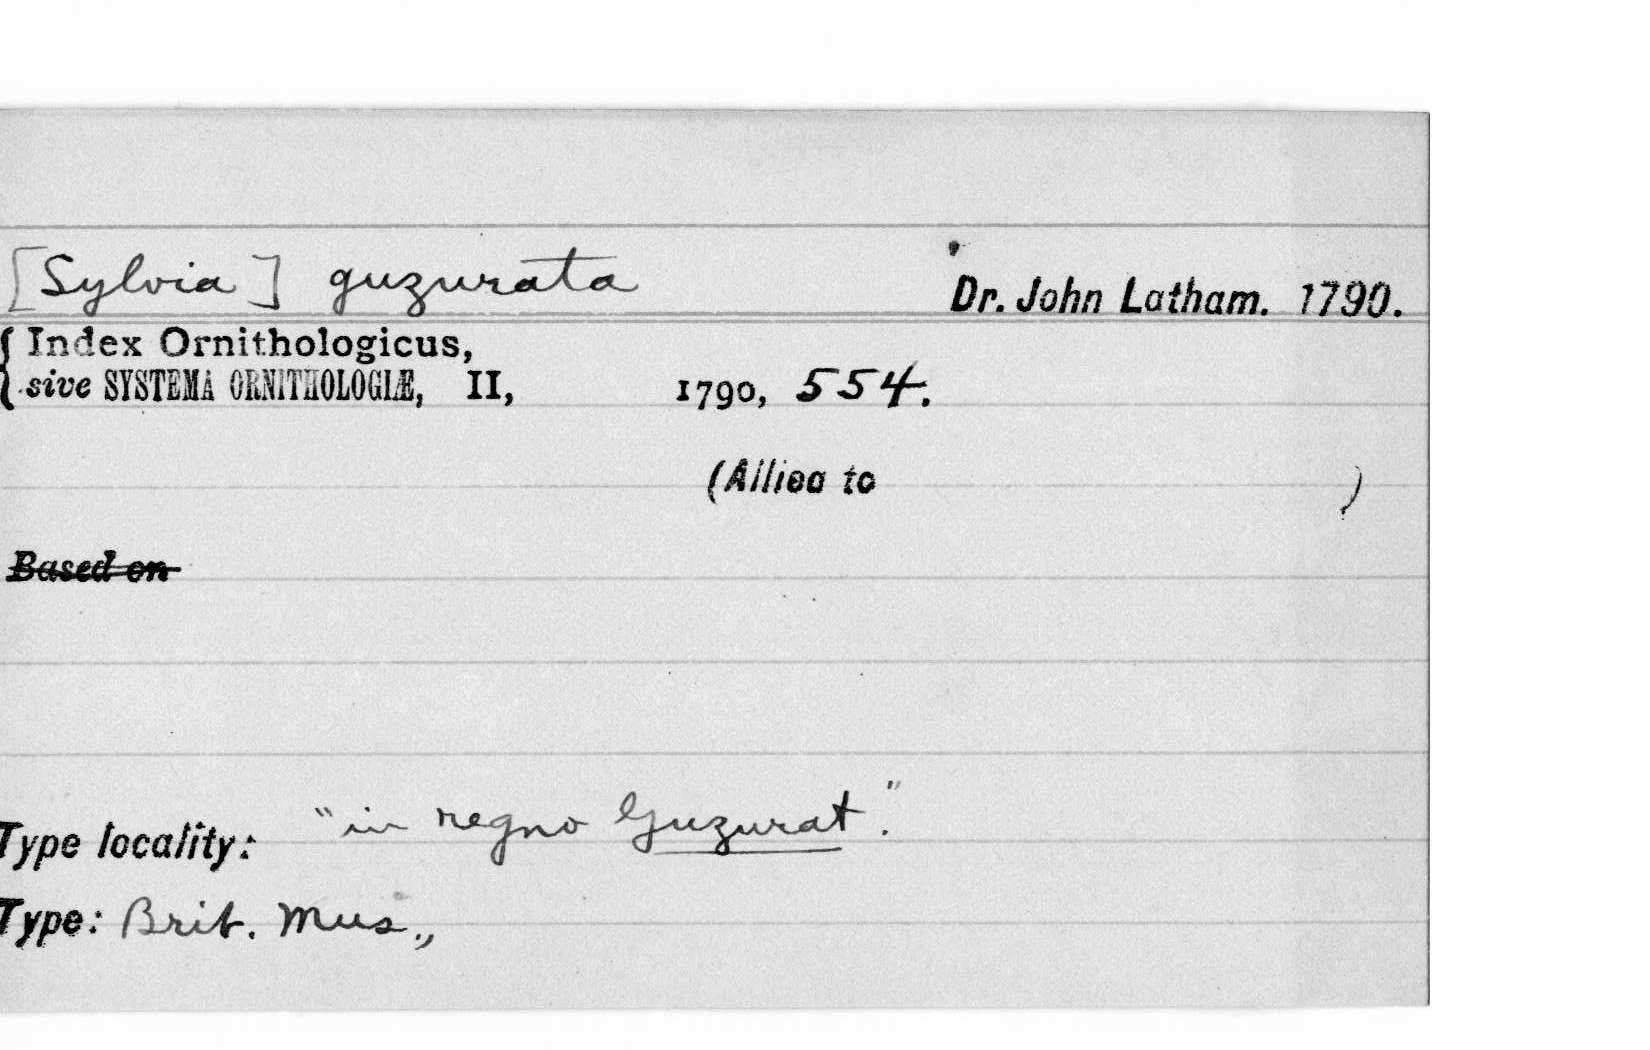 [Sylvia] guzurata Dr. John Latham. 1790.
Index Ornithologicus,
sive SYSTEMA ORNITHOLOGIÆ, II, 1790, 554.
(Allied to )
Based on
Type locality: "in regno Guzurat."
Type: Brit. Mus.,,